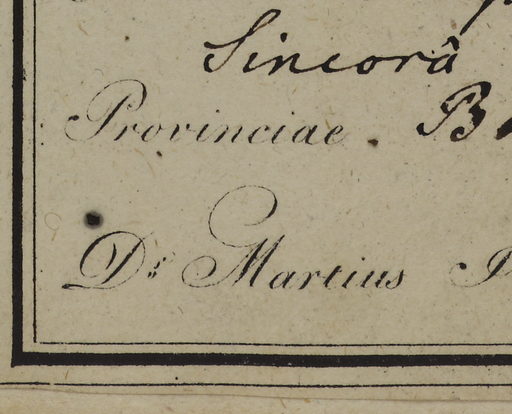 Sincorâ
Provinciae B
Ds Martius